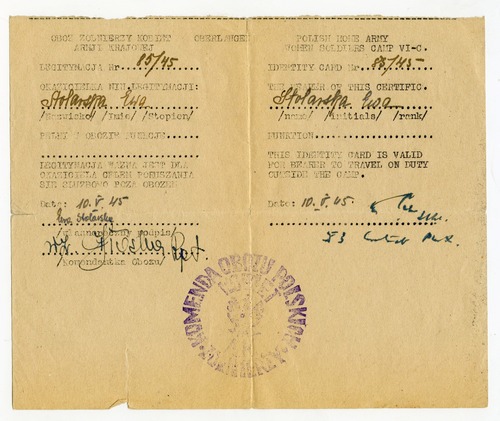 OBÓZ ŻOŁNIERZY KOBIET OBERLANGEN
ARMII KRAJOWEJ
LEGITYMACJA Nr 85/45
OKAZICIELKA NIN. LEGITYMACJI:
Stolarska Ewa
/Nazwisko/ /Imię/ /Stopień/
PEŁNI W OBOZIE FUNKCJE
LEGITYMACJA WAŻNA JEST DLA
OKAZICIELA CELEM PORUSZANIA
SIĘ SŁUŻBOWO POZA OBOZEM.
Data: 10.V.45
Ewa Stolarska
/własnoręczny podpis/
/Komendantka Obozu/
POLISH HOME ARMY
WOMEN SOLDIERS CAMP VI-C.
IDENTITY CARD Nr 85/45
THE BEARER OF THIS CERTIFIC.
Stolarska Ewa
/name/ /initials/ /rank/
FUNKTION.
THIS IDENTITY CARD IS VALID
FOR BEARER TO TRAVEL ON DUTY
OUTSIDE THE CAMP.
Date: 10.V.45
KOMENDA OBOZU POLSKICH
KOBIET